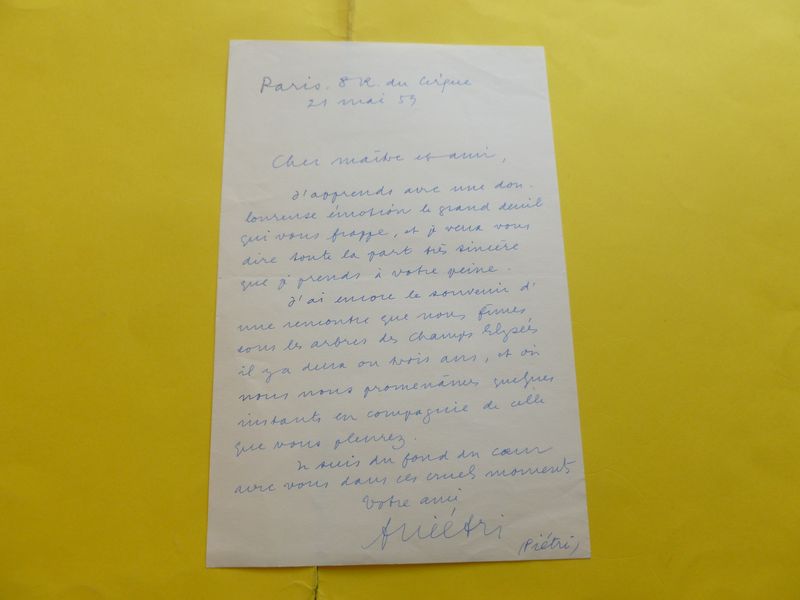 Paris. 8 R. du Cirque
21 mai 59
Cher maître et ami,
J'apprends avec une dou-
loureuse émotion le grand deuil
qui vous frappe, et je veux vous
dire toute la part très sincère
que je prends à votre peine.
J'ai encore le souvenir d'
une rencontre que nous fimes
sous les arbres des Champs Elysées
il y a deux ou trois ans, et où
nous nous promenâmes quelques
instants en compagnie de celle
que vous pleurez.
Je suis du fond du cœur
avec vous dans ces cruels moments
Votre ami
Piétri
(Piétri)